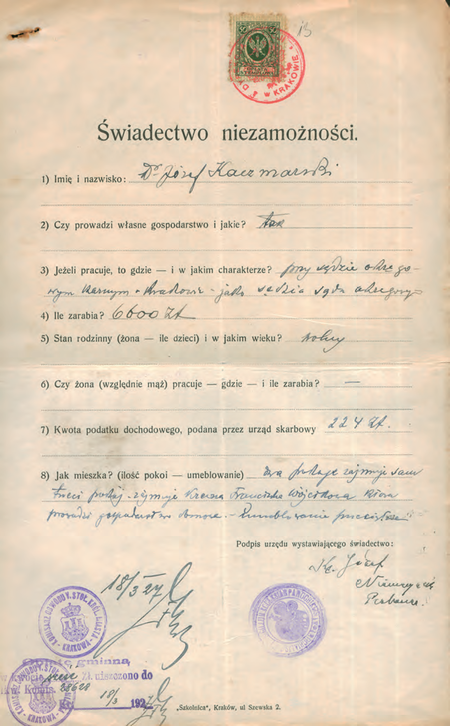 W KRAKOWIE
Świadectwo niezamożności.
1) Imię i nazwisko: Dr Józef Kaczmarski
2) Czy prowadzi własne gospodarstwo i jakie? tak
3) Jeżeli pracuje, to gdzie — i w jakim charakterze? przy sądzie okręgo-
wym karnym w Krakowie - jako sędzia sądu okręgowego
4) Ile zarabia? 6600 zł
5) Stan rodzinny (żona — ile dzieci) i w jakim wieku? wolny
6) Czy żona (względnie mąż) pracuje — gdzie — i ile zarabia? —
7) Kwota podatku dochodowego, podana przez urząd skarbowy 224 zł.
8) Jak mieszka? (ilość pokoi — umeblowanie) Dwa pokoje zajmuje sam
trzeci pokój - zajmuje krewna Franciszka Wójcikowa która
prowadzi gospodarstwo domowe. - Umeblowanie
Podpis urzędu wystawiającego świadectwo:
Ks. Józef
18/3 27
gminną
Zł. uiszczono do
18/3 192
„Szkolnica", Kraków, ul Szewska 2.